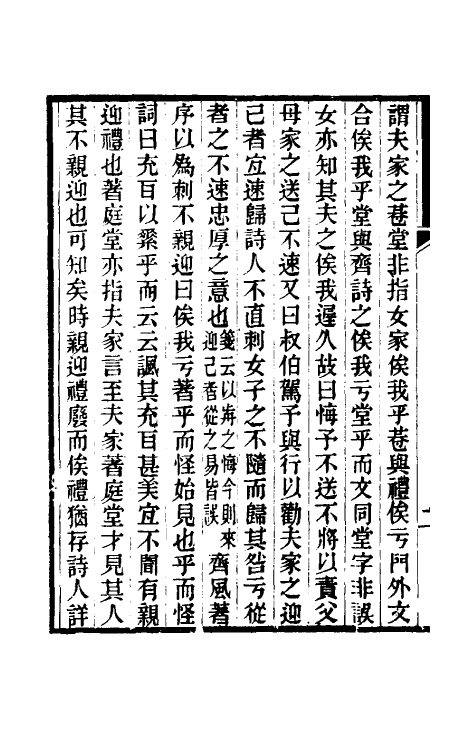 謂夫家之巷堂非指女家俟我乎巷與禮俟亏門外文
合俟我乎堂與齊詩之俟我亏堂乎而文同堂字非誤
女亦知其夫之俟我遲久故曰悔予不送不將以責父
母家之送己不速又曰叔伯駕予與行以勸夫家之迎
己者宜速歸詩人不直刺女子之不隨而歸其咎亏從
者之不速忠厚之意也箋云以前之悔今則來迎己者從之易皆誤齊風著
序以為刺不親迎曰俟我亏著乎而怪始見也乎而怪
詞曰充耳以絫乎而云云諷其充耳甚美宜不聞有親
迎禮也著庭堂亦指夫家言至夫家著庭堂才見其人
其不親迎也可知矣時親迎禮廢而俟禮猶存詩人詳